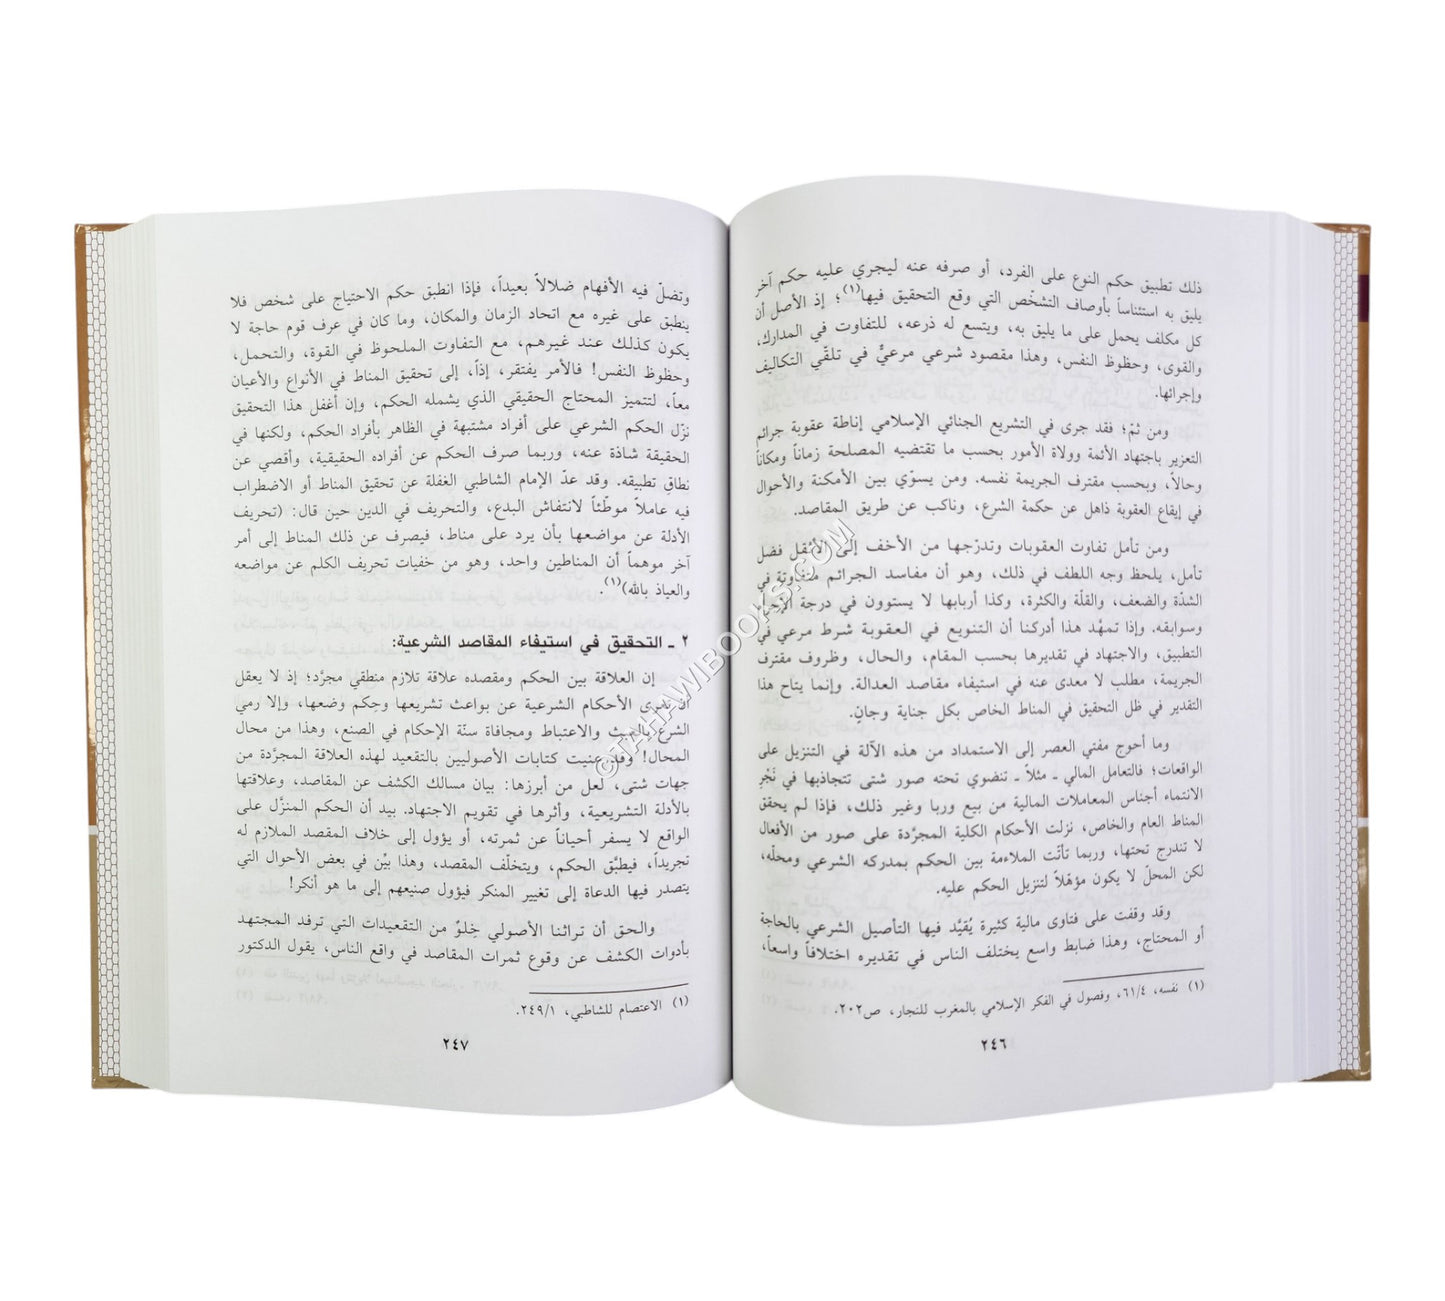 ذلك تطبيق حكم النوع على الفرد، أو صرفه عنه ليجري عليه حكم آخر
يليق به استئناساً بأوصاف التشخّص التي وقع التحقيق فيها(١)؛ إذ الأصل أن
كل مكلف يحمل على ما يليق به، ويتسع له ذرعه، للتفاوت في المدارك،
والقوى، وحظوظ النفس، وهذا مقصود شرعي مرعيٌّ في تلقّي التكاليف
وإجرائها.
ومن ثمّ؛ فقد جرى في التشريع الجنائي الإسلامي إناطة عقوبة جرائم
التعزير باجتهاد الأئمة وولاة الأمور بحسب ما تقتضيه المصلحة زماناً ومكاناً
وحالاً، وبحسب مقترف الجريمة نفسه. ومن يسوّي بين الأمكنة والأحوال
في إيقاع العقوبة ذاهل عن حكمة الشرع، وناكب عن طريق المقاصد.
ومن تأمل تفاوت العقوبات وتدرّجها من الأخف إلى الأثقل فضل
تأمل، يلحظ وجه اللطف في ذلك، وهو أن مفاسد الجرائم متفاوتة في
الشدّة والضعف، والقلّة والكثرة، وكذا أربابها لا يستوون في درجة الإجرام
وسوابقه. وإذا تمهّد هذا أدركنا أن التنويع في العقوبة شرط مرعي في
التطبيق، والاجتهاد في تقديرها بحسب المقام، والحال، وظروف مقترف
الجريمة، مطلب لا معدى عنه في استيفاء مقاصد العدالة. وإنما يتاح هذا
التقدير في ظل التحقيق في المناط الخاص بكل جناية وجانٍ.
وما أحوج مفتي العصر إلى الاستمداد من هذه الآلة في التنزيل على
الواقعات؛ فالتعامل المالي ـ مثلاً ـ تنضوي تحته صور شتى تتجاذبها في نَجْرِ
الانتماء أجناس المعاملات المالية من بيع وربا وغير ذلك، فإذا لم يحقق
المناط العام والخاص، نزلت الأحكام الكلية المجرَّدة على صور من الأفعال
لا تندرج تحتها، وربما تأتّت الملاءمة بين الحكم بمدركه الشرعي ومحلّه،
لكن المحلّ لا يكون مؤهّلاً لتنزيل الحكم عليه.
وقد وقفت على فتاوى مالية كثيرة يُقيَّد فيها التأصيل الشرعي بالحاجة
أو المحتاج، وهذا ضابط واسع يختلف الناس في تقديره اختلافاً واسعاً،
(١) نفسه، ٦١/٤، وفصول في الفكر الإسلامي بالمغرب للنجار، ص٢٠٢.
٢٤٦
وتضلّ فيه الأفهام ضلالاً بعيداً، فإذا انطبق حكم الاحتياج على شخص فلا
ينطبق على غيره مع اتحاد الزمان والمكان، وما كان في عرف قوم حاجة لا
يكون كذلك عند غيرهم، مع التفاوت الملحوظ في القوة، والتحمل،
وحظوظ النفس! فالأمر يفتقر، إذاً، إلى تحقيق المناط في الأنواع والأعيان
معاً، لتتميز المحتاج الحقيقي الذي يشمله الحكم، وإن أغفل هذا التحقيق
نزّل الحكم الشرعي على أفراد مشتبهة في الظاهر بأفراد الحكم، ولكنها في
الحقيقة شاذة عنه، وربما صرف الحكم عن أفراده الحقيقية، وأقصي عن
نطاق تطبيقه. وقد عدّ الإمام الشاطبي الغفلة عن تحقيق المناط أو الاضطراب
فيه عاملاً موطّئاً لانتفاش البدع، والتحريف في الدين حين قال: (تحريف
الأدلة عن مواضعها بأن يرد على مناط، فيصرف عن ذلك المناط إلى أمر
آخر موهماً أن المناطين واحد، وهو من خفيات تحريف الكلم عن مواضعه
والعياذ بالله)(١).
٢ ـ التحقيق في استيفاء المقاصد الشرعية:
إن العلاقة بين الحكم ومقصده علاقة تلازم منطقي مجرَّد؛ إذ لا يعقل
أن تعرى الأحكام الشرعية عن بواعث تشريعها وحِكم وضعها، وإلا رمي
الشرع بالعبث والاعتباط ومجافاة سنّة الإحكام في الصنع، وهذا من محال
المحال! وقد عنيت كتابات الأصوليين بالتقعيد لهذه العلاقة المجرَّدة من
جهات شتى، لعل من أبرزها: بيان مسالك الكشف عن المقاصد، وعلاقتها
بالأدلة التشريعية، وأثرها في تقويم الاجتهاد. بيد أن الحكم المنزّل على
الواقع لا يسفر أحياناً عن ثمرته، أو يؤول إلى خلاف المقصد الملازم له
تجريداً، فيطبَّق الحكم، ويتخلّف المقصد، وهذا بيّن في بعض الأحوال التي
يتصدر فيها الدعاة إلى تغيير المنكر فيؤول صنيعهم إلى ما هو أنكر!
والحق أن تراثنا الأصولي خِلوٌ من التقعيدات التي ترفد المجتهد
بأدوات الكشف عن وقوع ثمرات المقاصد في واقع الناس، يقول الدكتور
(١) الاعتصام للشاطبي، ٢٤٩/١.
٢٤٧
©TAHAWIBOOKS.COM